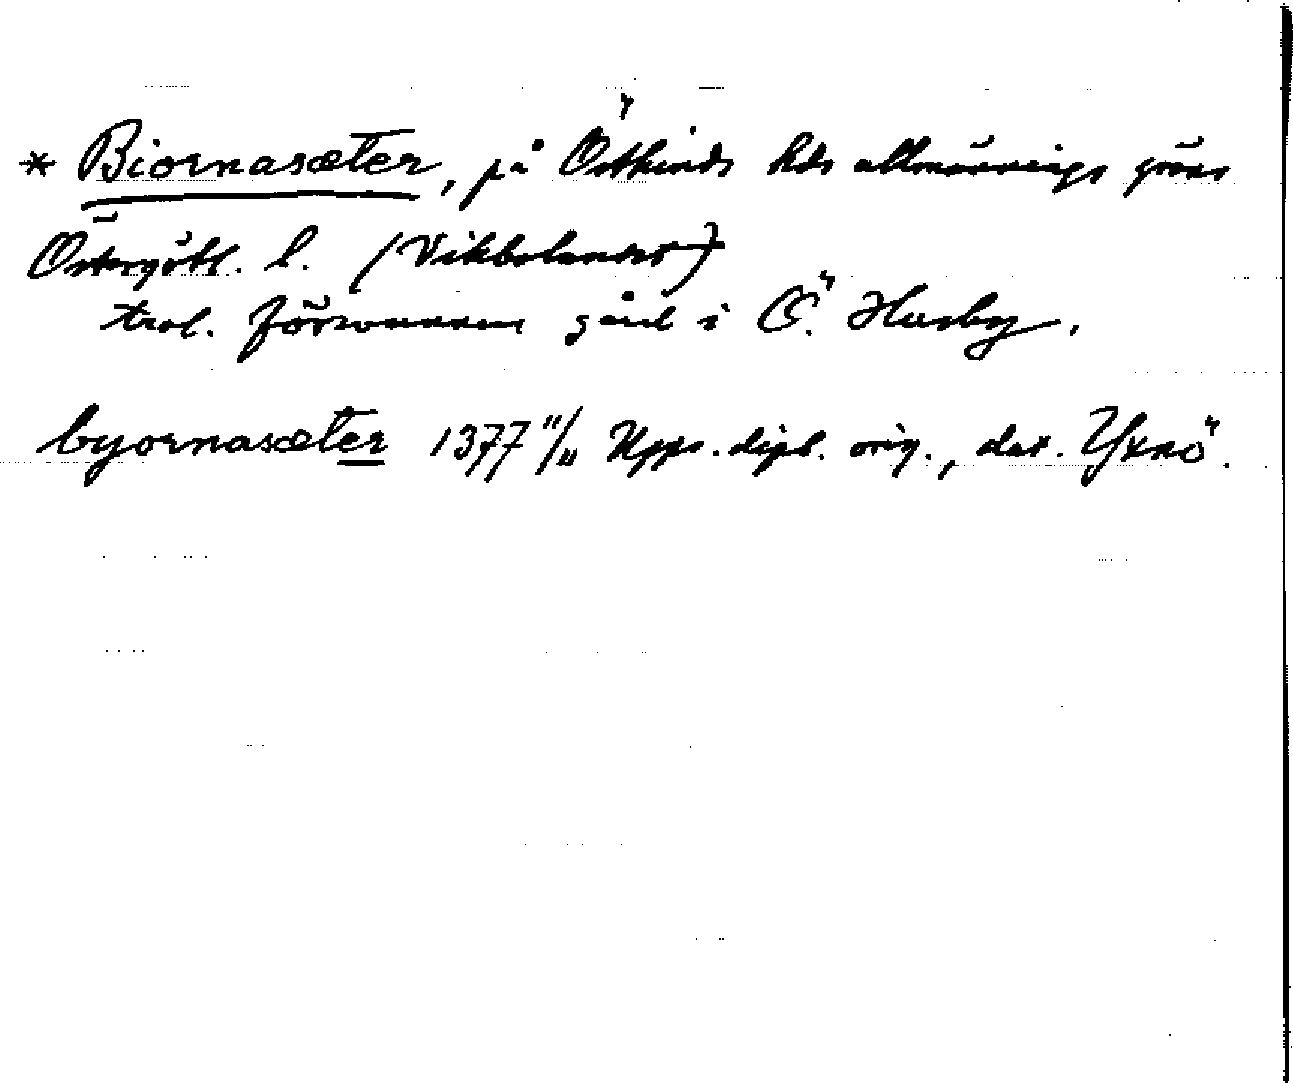 * Biornasæter, på Östkinds hds allmännings gräns
Östergötl. l. (Vikbolandet)
trol. försvunnen gård i Ö. Husby.
byornasæter 1377 11/11 Upps. dipl. orig., dat. Yxnö.